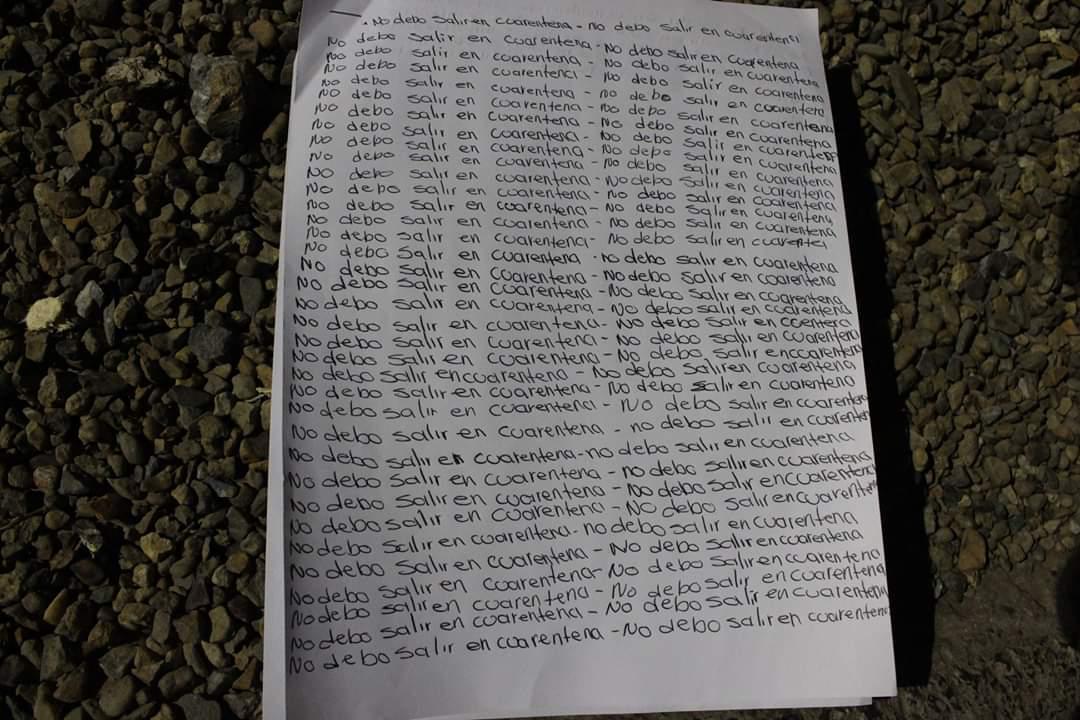 No debo Salir en cuarentena - no debo salir en cuarentena
No debo salir en cuarentena - No debo salir en cuarentena
No debo salir en cuarentena - No debo salir en cuarentena
No debo salir en cuarentena - No debo salir en cuarentena
No debo salir en cuarentena - No debo salir en cuarentena
No debo salir en cuarentena - No debo salir en cuarentena
No debo salir en cuarentena - No debo salir en cuarentena
No debo salir en cuarentena - No debo salir en cuarentena
No debo salir en cuarentena - No debo salir en cuarentena
No debo salir en cuarentena - No debo salir en cuarentena
No debo salir en cuarentena - No debo salir en cuarentena
No debo salir en cuarentena - No debo salir en cuarentena
No debo salir en cuarentena - No debo salir en cuarentena
No debo salir en cuarentena - No debo salir en cuarentena
No debo salir en cuarentena - No debo salir en
No debo Salir en cuarentena - no debo salir en cuarentena
No debo salir en cuarentena - No debo salir en cuarentena
No debo salir en cuarentena - No debo salir en cuarentena
No debo salir en cuarentena - No debo salir en cuarentena
No debo salir en cuarentena - No debo salir en
No debo salir en cuarentena - No debo salir en cuarentena
No debo salir en cuarentena - No debo salir en cuarentena
No debo salir en cuarentena - No debo salir en cuarentena
No debo salir en cuarentena - No debo salir en cuarentena
No debo salir en cuarentena - No debo salir en cuarentena
No debo salir en cuarentena - no debo salir en cuarentena
No debo salir en cuarentena - no debo salir en cuarentena
No debo salir en cuarentena - no debo salir en cuarentena
No debo salir en cuarentena - No debo salir en cuarentena
No debo salir en cuarentena - No debo salir en cuarentena
No debo salir en cuarentena - no debo salir en cuarentena
No debo salir en cuarentena - No debo salir en cuarentena
No debo salir en cuarentena - No debo salir en cuarentena
No debo salir en cuarentena - No debo salir en cuarentena
No debo salir en cuarentena - No debo salir en cuarentena
No debo salir en cuarentena - No debo salir en cuarentena